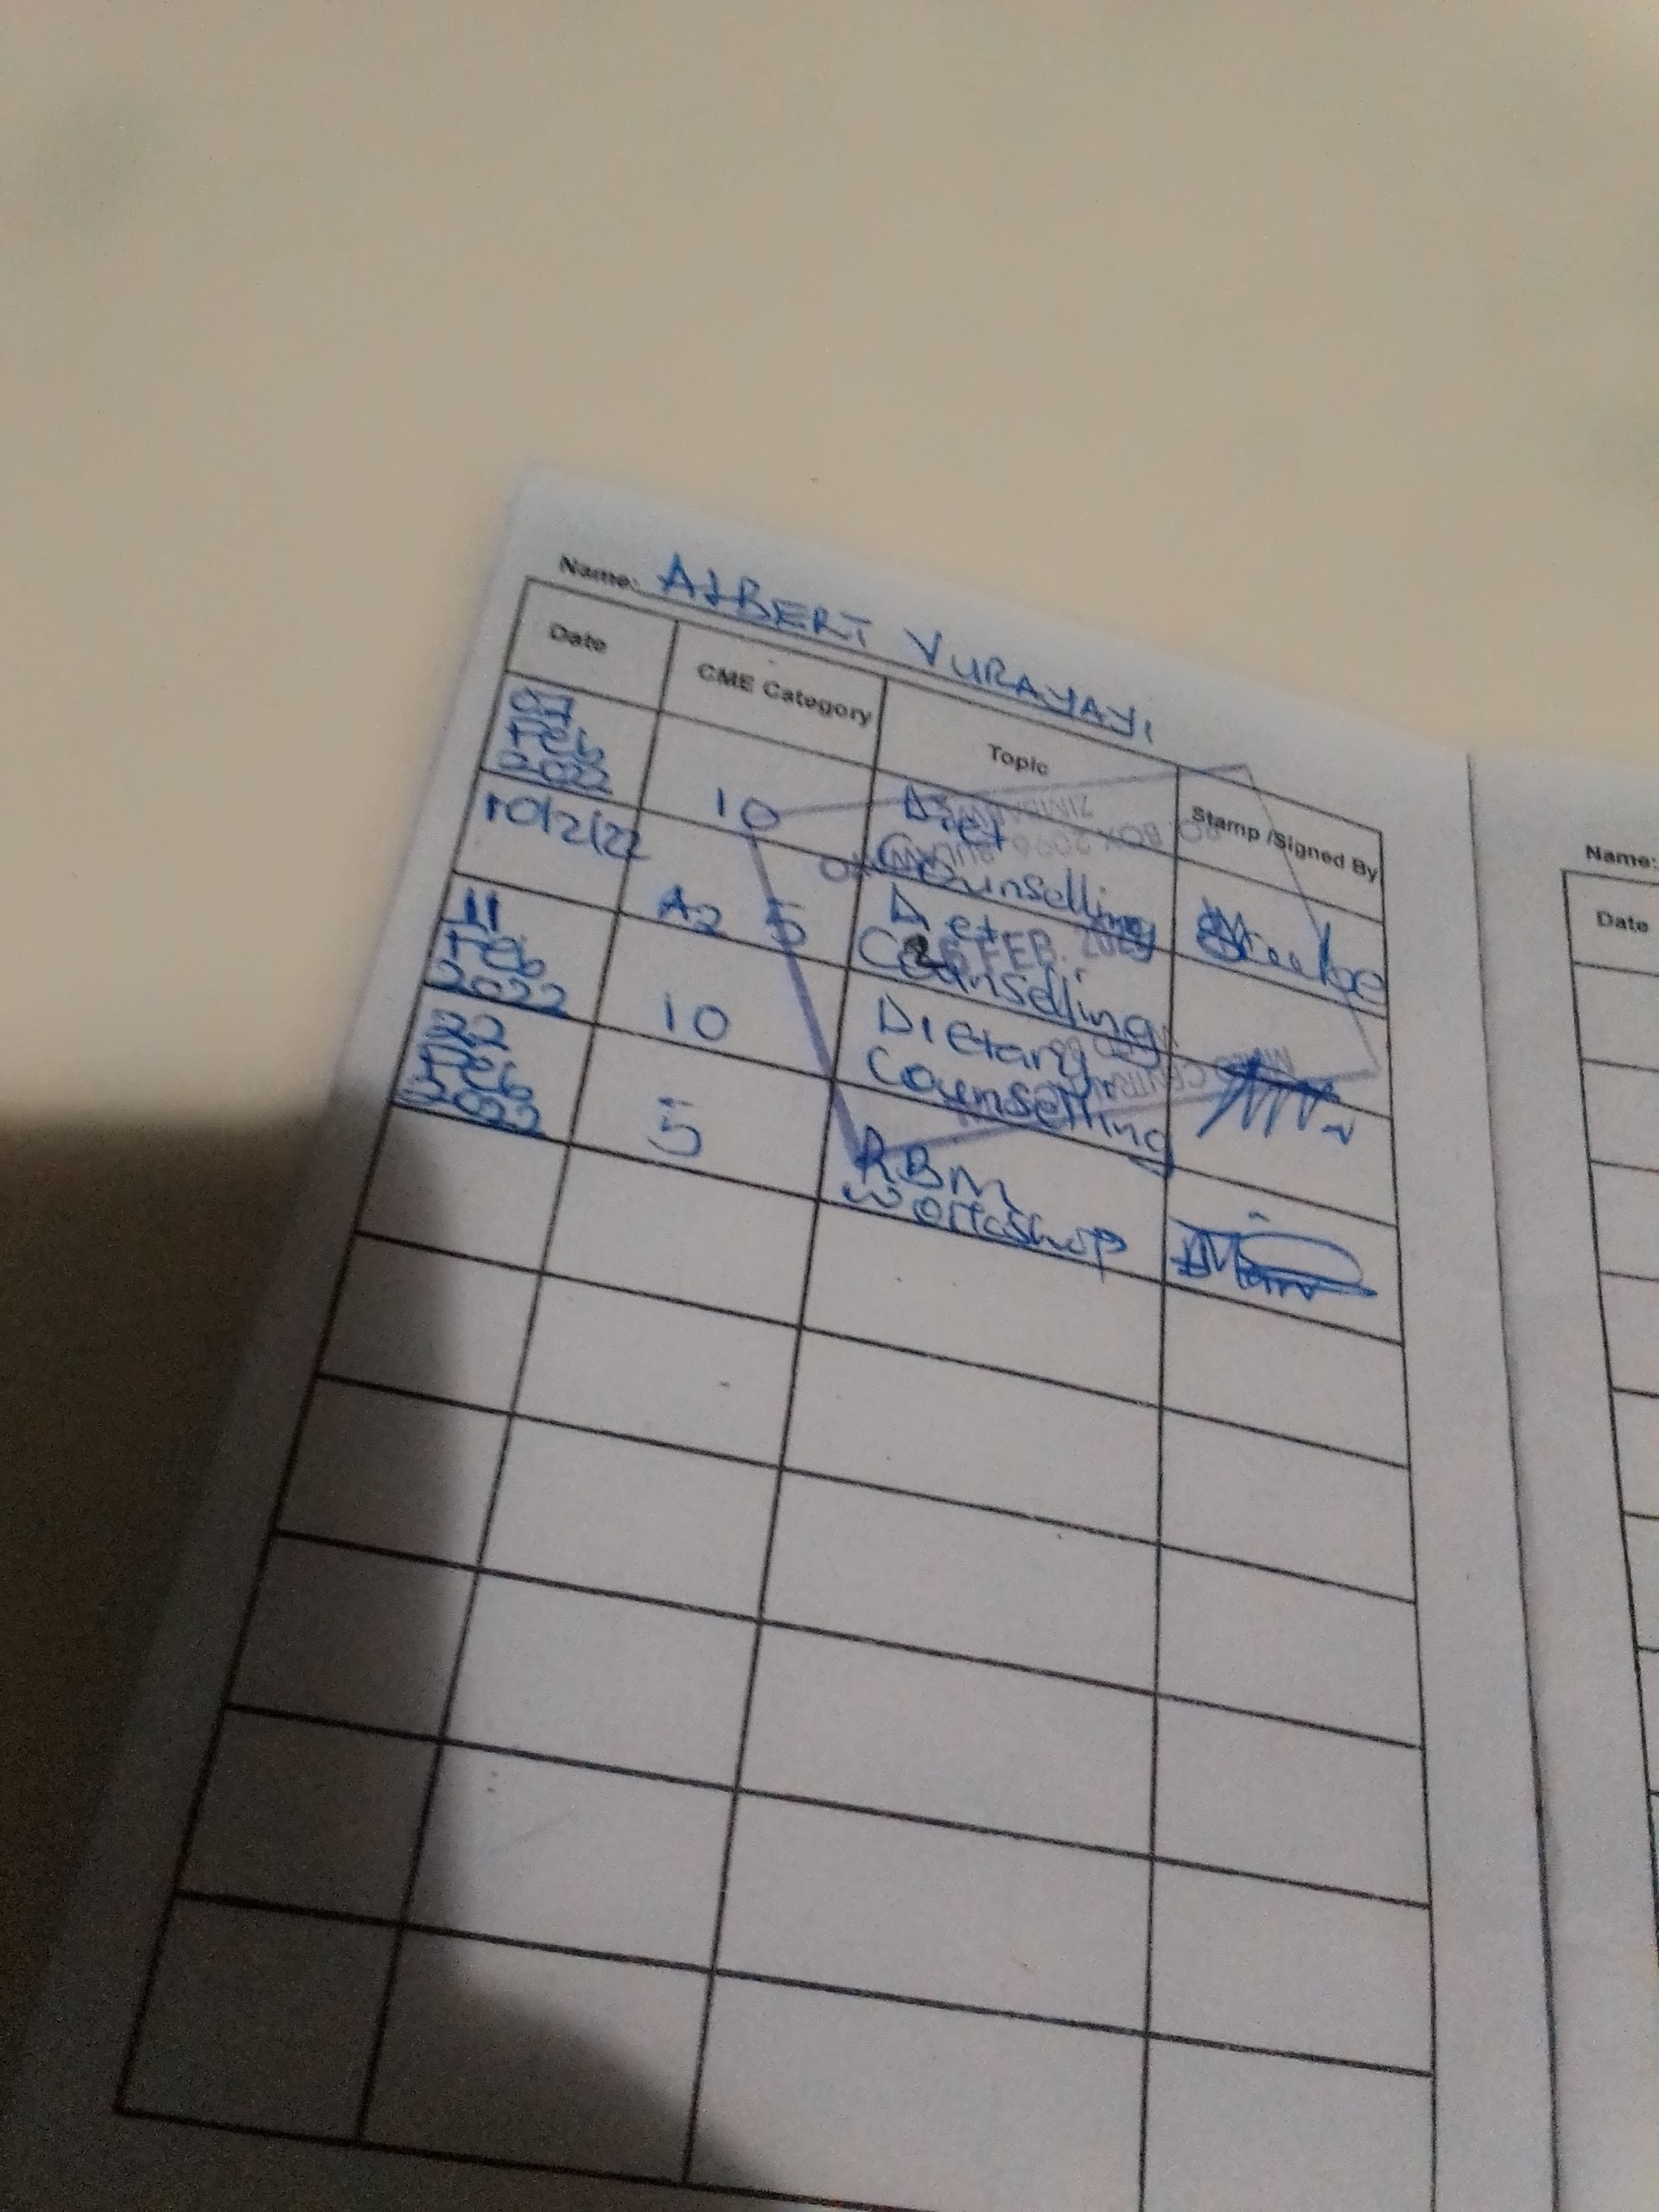 Name: ALBERT VURAYAYI
Date CME Category Topic Stamp /Signed By
07 Feb 2022 10 Diet Counselling
10/2/22 A2 5 Diet Counselling
11 Feb 2022 10 Dietary Counselling
22 Feb 2022 5 RBM workshop
BOX
FEB.
Name:
Date